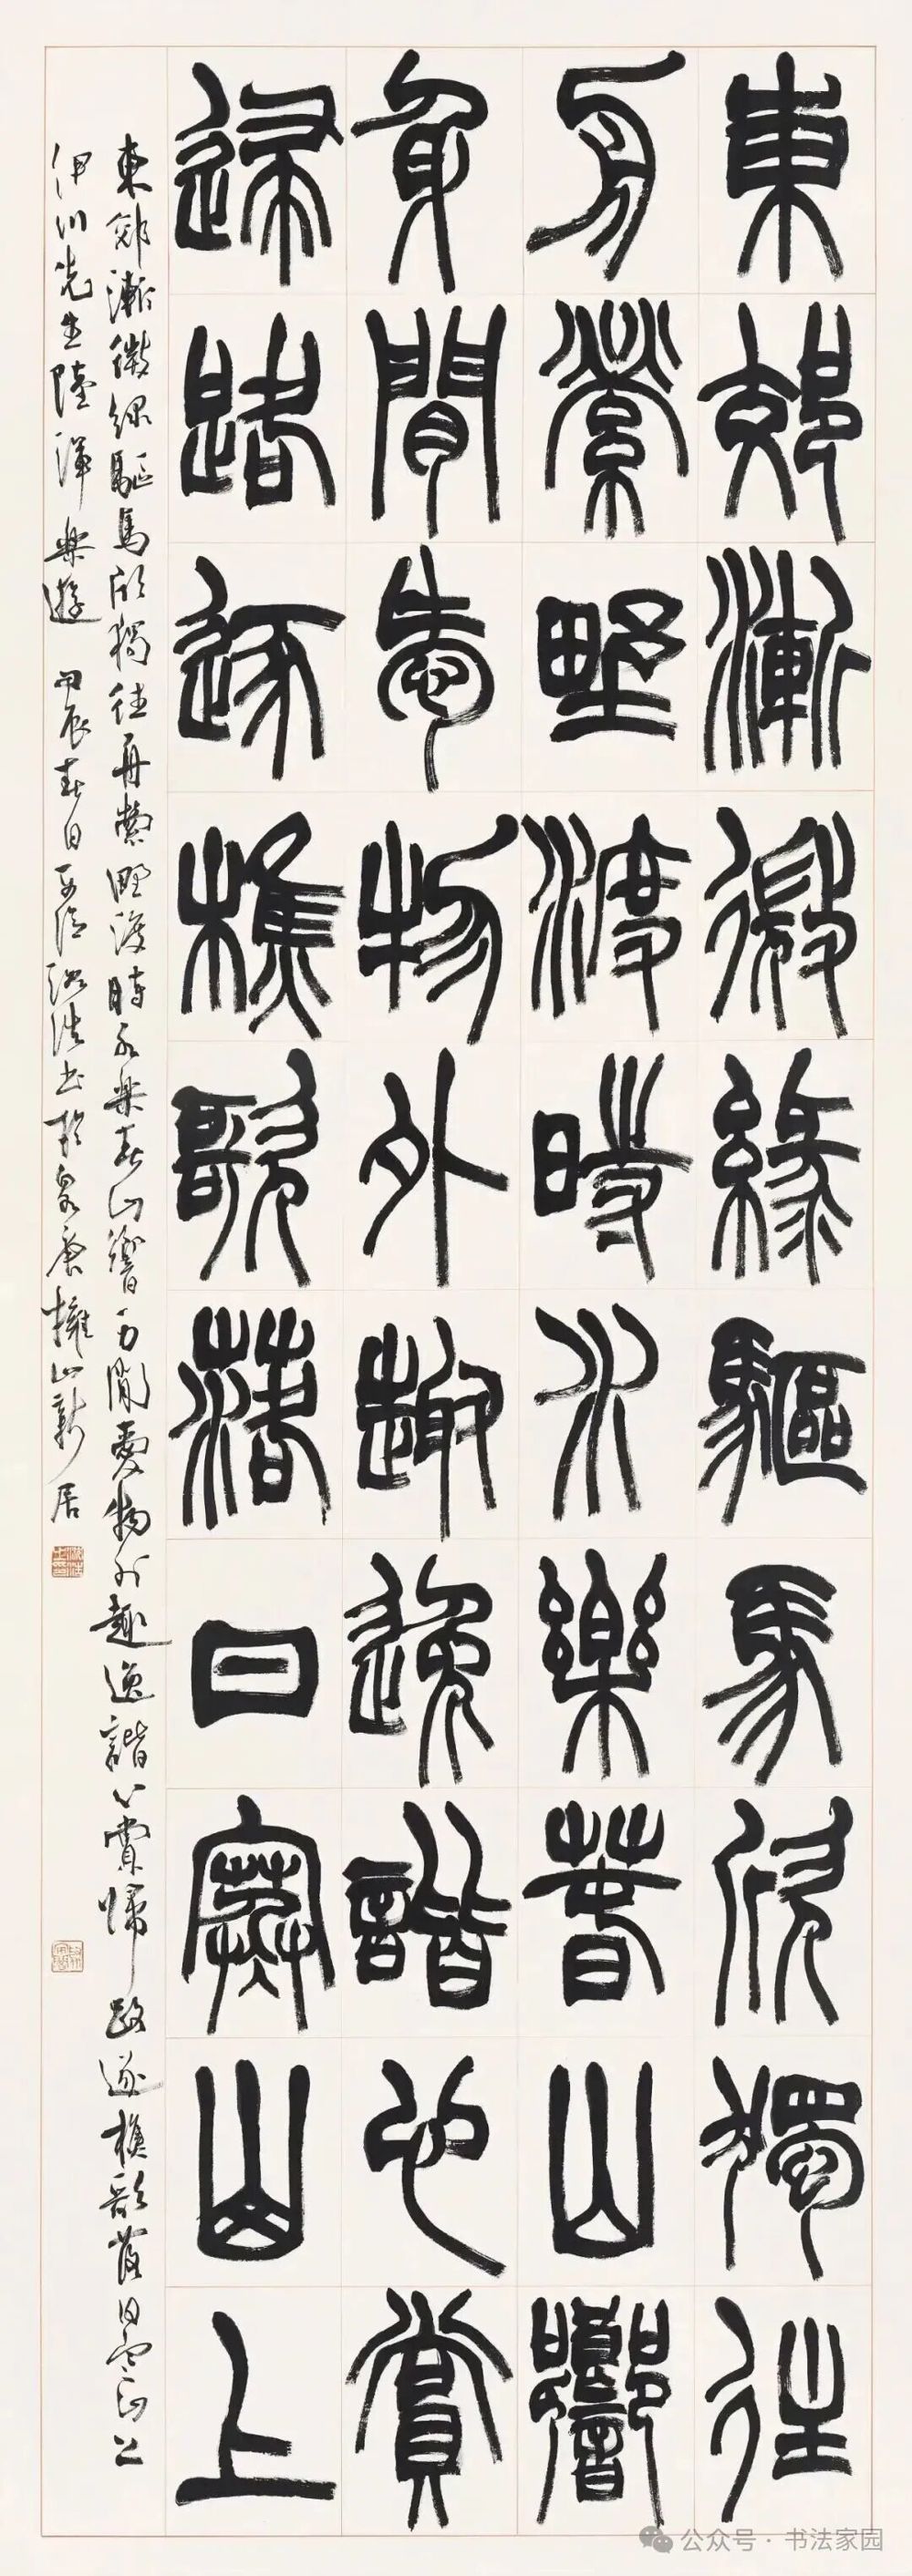 東郊漸微綠驅馬欣獨往
舟縈野渡時水樂春山響
身閒愛物外趣逸諧心賞
歸路逐樵歌落日寒山上
東郊漸微綠驅馬欣獨往舟縈野渡時水樂春山響身閒愛物外趣逸諧心賞歸路逐樵歌落日寒山上
伊川先生陸渾樂遊 甲辰春日 書於泉唐擁山新居
公众号·书法家园